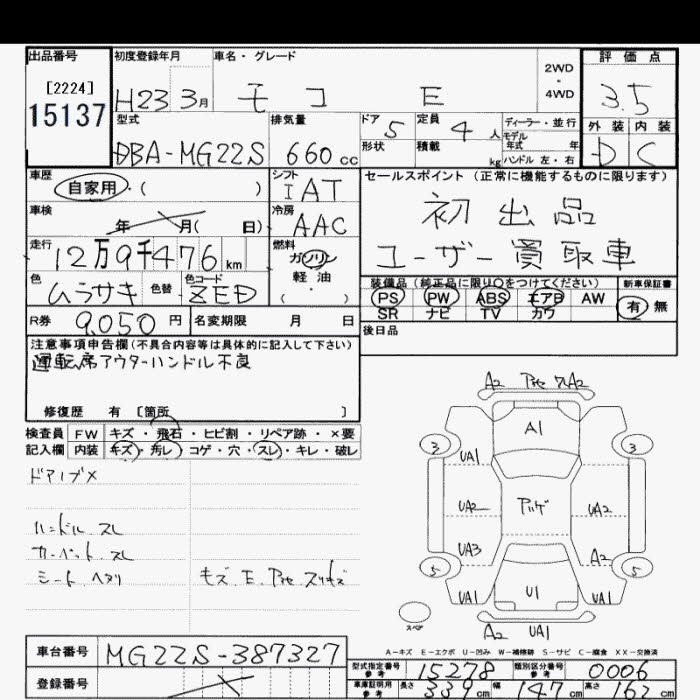 出品番号 初度登録年月 車名・グレード 2WD・4WD 評価点
[2224] 15137 H23 3月 モコ E 3.5
外装 内装
D C
型式 排気量 ドア 定員 ディーラー・並行
DBA-MG22S 660cc 5 4人 モデル年式 年
形状 積載 kg ハンドル 左・右
車歴 自家用・( ) シフト IAT セールスポイント(正常に機能するものに限ります)
車検 年 月( 日) 冷房 AAC 初出品
走行 12万9千476km 燃料 ガソリン・軽油・( ) ユーザー買取車
色 ムラサキ 色替 色コード ZED
装備品(純正品に限り○をつけてください) 新車保証書
PS PW ABS エアB AW 有 無
SR ナビ TV カワ
R券 9,050円 名変期限 月 日 後日品
注意事項申告欄(不具合内容等は具体的に記入して下さい)
運転席アウターハンドル不良
修復歴 有 [箇所 ]
検査員 FW キズ・飛石・ヒビ割・リペア跡・×要
記入欄 内装 キズ・汚レ・コゲ・穴・スレ・キレ・破レ
ハンドル スレ
カーペット スレ
シート ヘタリ
A2 A2
A1
3 3
UA1
UA2 UA2
UA3 A2
5 5
UA1 U1 UA1
スペア
A2 UA1
A-キズ E-エクボ U-凹み W-補修跡 S-サビ C-腐食 XX-交換済
車台番号 MG22S-387327
登録番号
型式指定番号 参考 15278 類別区分番号 参考 0006
車庫証明用 参考 長さ 339cm 幅 147cm 高さ 162cm